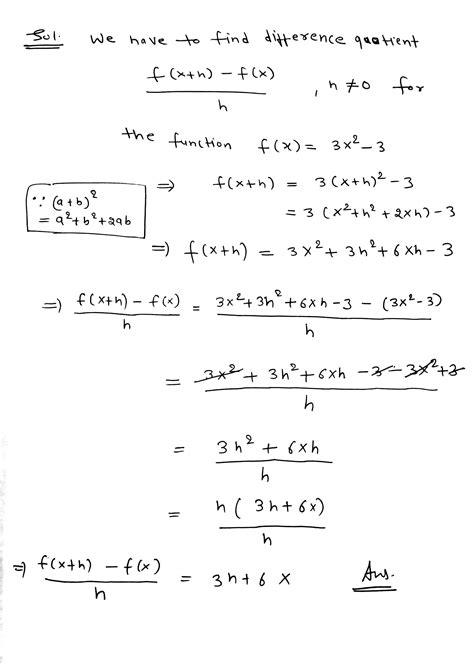 Sol. We have to find difference quotient
f(x+h) - f(x) / h , h ≠ 0 for
the function f(x) = 3x² - 3
∵ (a+b)² = a²+b²+2ab
⇒ f(x+h) = 3(x+h)² - 3
= 3(x²+h²+2xh) - 3
⇒ f(x+h) = 3x² + 3h² + 6xh - 3
⇒ f(x+h) - f(x) / h = 3x²+3h²+6xh-3 - (3x²-3) / h
= 3x² + 3h² + 6xh - 3 - 3x² + 3 / h
= 3h² + 6xh / h
= h ( 3h + 6x) / h
⇒ f(x+h) - f(x) / h = 3h + 6x Ans.